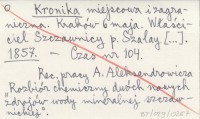 Kronika miejscowa i zagra-
niczna. Kraków 6 maja. Właści-
ciel Szczawnicy p. Szalay [...].
1857. - Czas nr 104.
Rec. pracy A. Aleksandrowicza
"Rozbiór chemiczny dwóch nowych
zdrojów wody mineralnej szczaw-
nickiej".